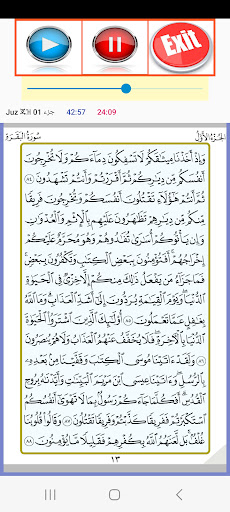 Exit
Juz 지브 01 جزء 42:57 24:09
الجُزْءُ الأَوَّلُ سُورَةُ البَقَرَةِ
وَإِذْ أَخَذْنَا مِيثَٰقَكُمْ لَا تَسْفِكُونَ دِمَآءَكُمْ وَلَا تُخْرِجُونَ
أَنفُسَكُم مِّن دِيَٰرِكُمْ ثُمَّ أَقْرَرْتُمْ وَأَنتُمْ تَشْهَدُونَ ٨٤
ثُمَّ أَنتُمْ هَٰٓؤُلَآءِ تَقْتُلُونَ أَنفُسَكُمْ وَتُخْرِجُونَ فَرِيقًا
مِّنكُم مِّن دِيَٰرِهِمْ تَظَٰهَرُونَ عَلَيْهِم بِٱلْإِثْمِ وَٱلْعُدْوَٰنِ
وَإِن يَأْتُوكُمْ أُسَٰرَىٰ تُفَٰدُوهُمْ وَهُوَ مُحَرَّمٌ عَلَيْكُمْ
إِخْرَاجُهُمْ أَفَتُؤْمِنُونَ بِبَعْضِ ٱلْكِتَٰبِ وَتَكْفُرُونَ بِبَعْضٍ
فَمَا جَزَآءُ مَن يَفْعَلُ ذَٰلِكَ مِنكُمْ إِلَّا خِزْىٌ فِى ٱلْحَيَوٰةِ
ٱلدُّنْيَا وَيَوْمَ ٱلْقِيَٰمَةِ يُرَدُّونَ إِلَىٰٓ أَشَدِّ ٱلْعَذَابِ وَمَا ٱللَّهُ
بِغَٰفِلٍ عَمَّا تَعْمَلُونَ ٨٥ أُو۟لَٰٓئِكَ ٱلَّذِينَ ٱشْتَرَوُا۟ ٱلْحَيَوٰةَ
ٱلدُّنْيَا بِٱلْءَاخِرَةِ فَلَا يُخَفَّفُ عَنْهُمُ ٱلْعَذَابُ وَلَا هُمْ يُنصَرُونَ
٨٦ وَلَقَدْ ءَاتَيْنَا مُوسَى ٱلْكِتَٰبَ وَقَفَّيْنَا مِنۢ بَعْدِهِۦ
بِٱلرُّسُلِ وَءَاتَيْنَا عِيسَى ٱبْنَ مَرْيَمَ ٱلْبَيِّنَٰتِ وَأَيَّدْنَٰهُ بِرُوحِ
ٱلْقُدُسِ أَفَكُلَّمَا جَآءَكُمْ رَسُولٌۢ بِمَا لَا تَهْوَىٰٓ أَنفُسُكُمُ
ٱسْتَكْبَرْتُمْ فَفَرِيقًا كَذَّبْتُمْ وَفَرِيقًا تَقْتُلُونَ ٨٧ وَقَالُوا۟ قُلُوبُنَا
غُلْفٌۢ بَل لَّعَنَهُمُ ٱللَّهُ بِكُفْرِهِمْ فَقَلِيلًا مَّا يُؤْمِنُونَ ٨٨
١٣